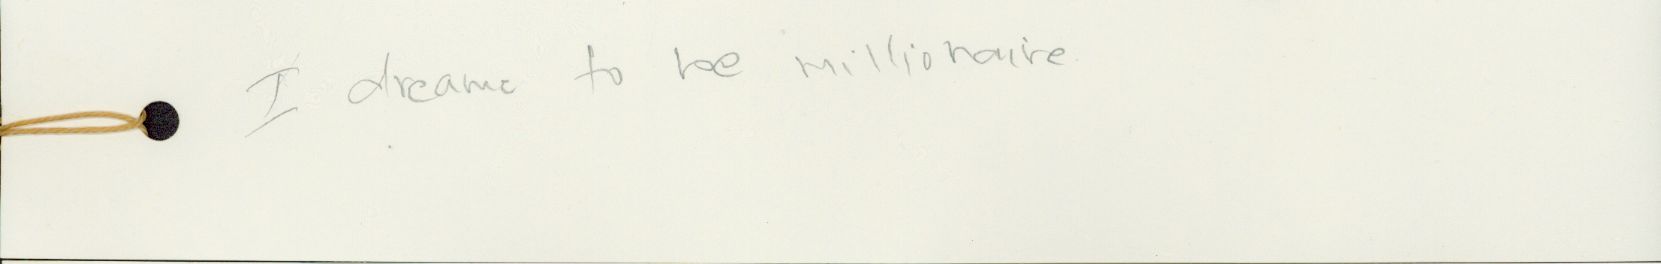 I dreame to be millionaire